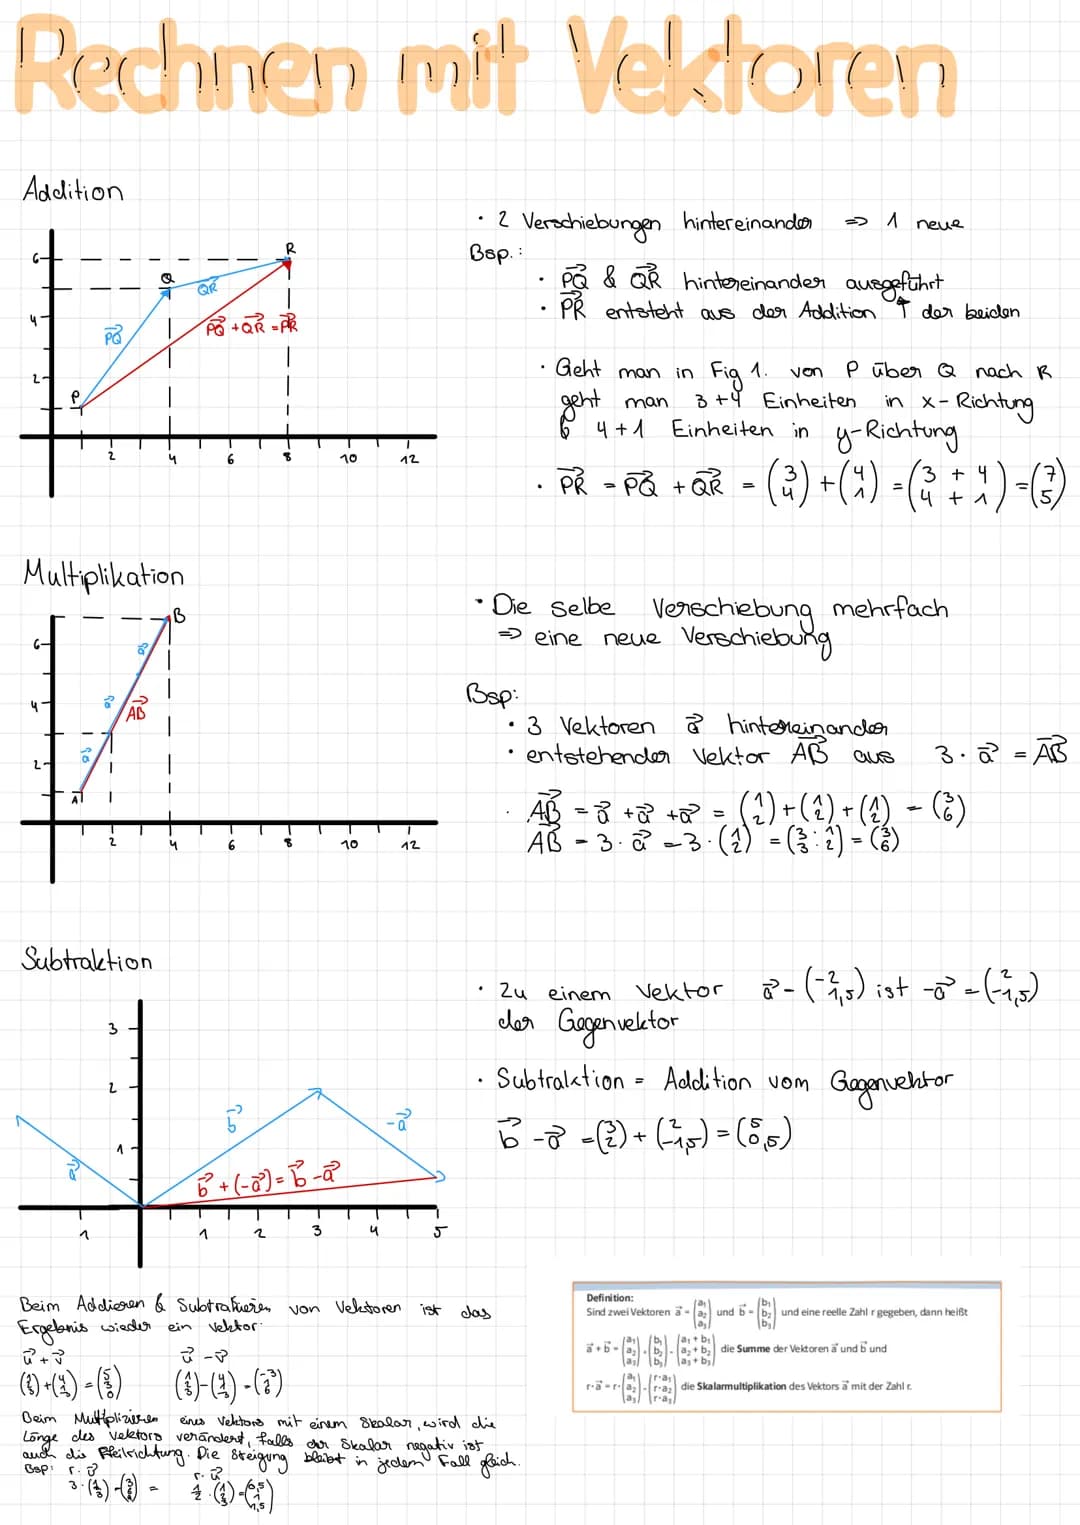 Rechnen mit Vektoren
Addition
6
4
2
2 4 6 8 10 12
P
Q
R
PQ
QR
PQ + QR = PR
· 2 Verschiebungen hintereinander ⇒ 1 neue
Bsp.:
· PQ & QR hintereinander ausgeführt
· PR entsteht aus der Addition ↑ der beiden
· Geht man in Fig 1. von P über Q nach R
geht man 3+4 Einheiten in x-Richtung
& 4+1 Einheiten in y-Richtung
· PR = PQ + QR = (3 4) + (4 1) = (3 + 4 4 + 1) = (7 5)
Multiplikation
6
4
2
2 4 6 8 10 12
A
B
a
a
a
AB
· Die selbe Verschiebung mehrfach
⇒ eine neue Verschiebung
Bsp:
· 3 Vektoren a hintereinander
· entstehender Vektor AB aus 3 · a = AB
· AB = a + a + a = (1 2) + (1 2) + (1 2) = (3 6)
AB = 3 · a = 3 · (1 2) = (3 · 1 3 · 2) = (3 6)
Subtraktion
3
2
1
1 1 2 3 4 5
a
b
-a
b + (-a) = b - a
· Zu einem Vektor a = (-2 1,5) ist -a = (2 -1,5)
der Gegenvektor
· Subtraktion = Addition vom Gegenvektor
b - a = (3 2) + (2 -1,5) = (5 0,5)
Beim Addieren & Subtrahieren von Vektoren ist das
Ergebnis wieder ein Vektor.
u + v u - v
Beim Multiplizieren eines Vektors mit einem Skalar, wird die
Länge des Vektors verändert, falls der Skalar negativ ist
auch die Pfeilrichtung. Die Steigung bleibt in jedem Fall gleich.
Bsp:
Definition:
Sind zwei Vektoren a = (a1 a2 a3) und b = (b1 b2 b3) und eine reelle Zahl r gegeben, dann heißt
a + b = (a1 a2 a3) + (b1 b2 b3) = (a1 + b1 a2 + b2 a3 + b3) die Summe der Vektoren a und b und
r·a = r·(a1 a2 a3) = (r·a1 r·a2 r·a3) die Skalarmultiplikation des Vektors a mit der Zahl r.